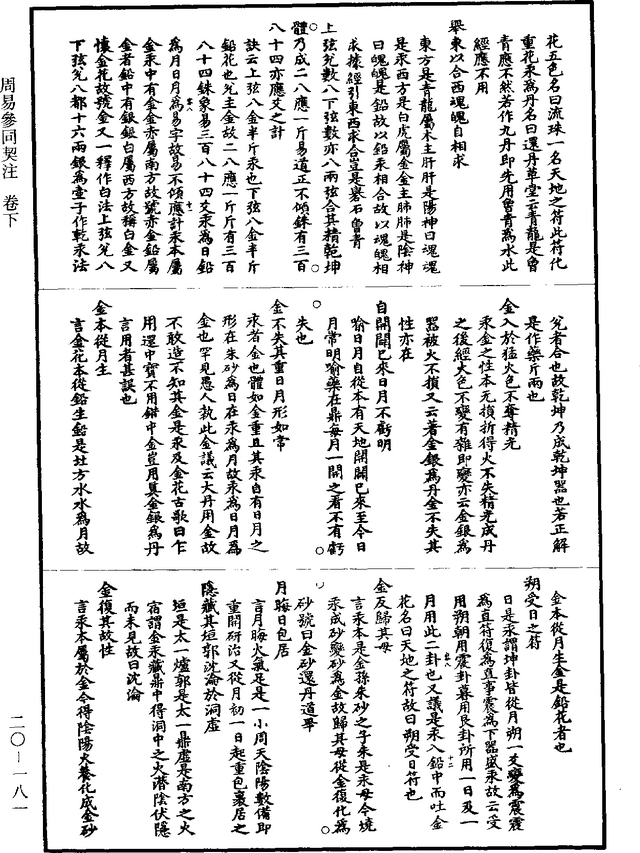 花五色名曰流珠一名天地之符此符化
重花汞為丹名曰還丹草堂云青龍是曾
青應不然若作九丹即先用曾青為水此
經應不用
舉東以合西魂魄自相求
東方是青龍屬木主肝肝是陽神曰魂魂
是求西方是白虎屬金金主肺肺是陰神
曰魄魄是鉛故以鉛汞相合故以魂魄相
求據經引東西求合豈是礜石曾青
上弦兌數八下弦艮亦八兩弦合其精乾坤
體乃成二八應一斤易道正不傾銖有三百
八十四亦應爻之計
訣云上弦八金半斤汞也下弦八金半斤
鉛花也兌主金故二八應一斤斤有三百
八十四銖象易三百八十四爻汞為日鉛
為月日月為易字故易不傾應計汞本屬
金汞中有金金赤屬南方故號赤金鉛屬
金者鉛中有銀銀白屬西方故稱白金又
懷金花故號金又一釋作白法上弦兌八
下弦兌八都十六兩銀為壼子作乾汞法
兌者合也故乾坤乃成乾坤器也若正解
是作藥斤兩也
金入於猛火色不奪精光
汞金之性本无損折得火不失精光成丹
之後經大色不變有雜即變亦云金銀為
器被火不損又云著金銀為丹金不失其
性亦在
自開闢已來日月不虧明
喻日月自從本有天地開闢已來至今日
月常明喻藥在鼎每月一開之看不有虧
失也
金不失其重日月形如常
汞者金也體如金重且其汞自有日月之
形在朱砂為日在汞為月故汞為日月為
金也罕見愚人執此金議云大丹用金故
不敢造不知其金是汞及金花古歌曰乍
用還中寶不用錯中金豈用真金銀為丹
言用者甚誤也
金本從月生
言金花本從鉛生鉛是北方水水為月故
金本從月生金是鉛花者也
朔受日之符
日是汞謂坤卦皆從月朔一爻變為震震
為直符復為直事震為下器盛汞故云受
用朔朝用震卦暮用艮卦所用一日及一
月用此二卦也又議是汞入鉛中而吐金
花名曰天地之符故曰朔受日符也
金反歸其母
言汞本是金孫朱砂之子朱是汞母今燒
汞成砂變砂為金故歸其母從金復化為
砂號曰金砂還丹道畢
月晦日包居
言月晦火氣足是一小周天陰陽數備即
重開研治又從月初一日起重包裹居之
隱藏其垣郭沈淪於洞虛
垣是太一爐郭是太一鼎虛是南方之火
宿謂金汞藏鼎中得洞中之火潛陰伏隱
而未見故曰沈淪
金復其故性
言汞本屬於金今得陰陽火養化成金砂
周易參同契注 卷下
二〇—一八一